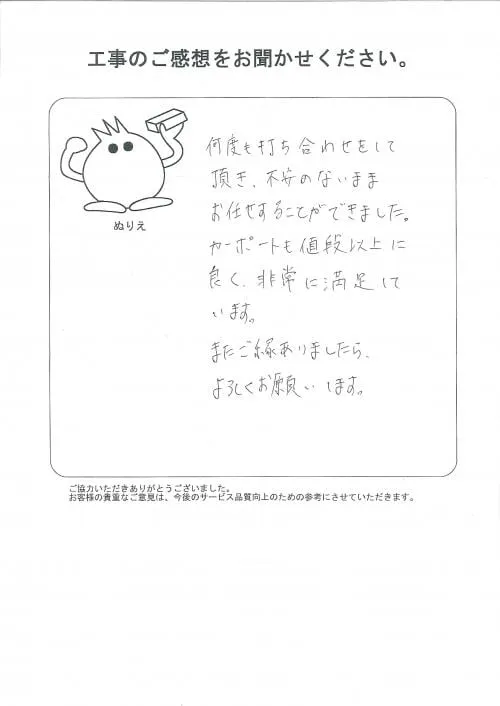 工事のご感想をお聞かせください。
何度も打ち合わせをして
頂き、不安のないまま
お任せすることができました。
カーポートも値段以上に
良く、非常に満足して
います。
またご縁ありましたら、
よろしくお願いします。
ぬりえ
ご協力いただきありがとうございました。
お客様の貴重なご意見は、今後のサービス品質向上のための参考にさせていただきます。